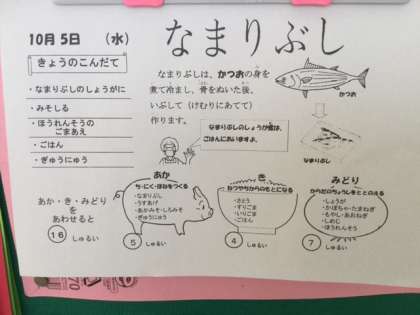 10月5日 (水)
なまりぶし
きょうのこんだて
・なまりぶしのしょうがに
・みそしる
・ほうれんそうの
ごまあえ
・ごはん
・ぎゅうにゅう
なまりぶしは、かつおの身を
煮て冷まし、骨をぬいた後、
いぶして(けむりにあてて)
作ります。
かつお
なまりぶしのしょうが煮は、
ごはんにあいますよ。
なまりぶし
あか・き・みどり
を
あわせると
16 しゅるい
あか
ち・にく・ほねをつくる
・なまりぶし
・うすあげ
・あかみそ・しろみそ
・ぎゅうにゅう
5 しゅるい
き
ねつやちからのもとになる
・さとう
・すりごま
・いりごま
・ごはん
4 しゅるい
みどり
からだのちょうしをととのえる
・しょうが
・かぼちゃ・たまねぎ
・もやし・あおねぎ
・しめじ
・ほうれんそう
7 しゅるい